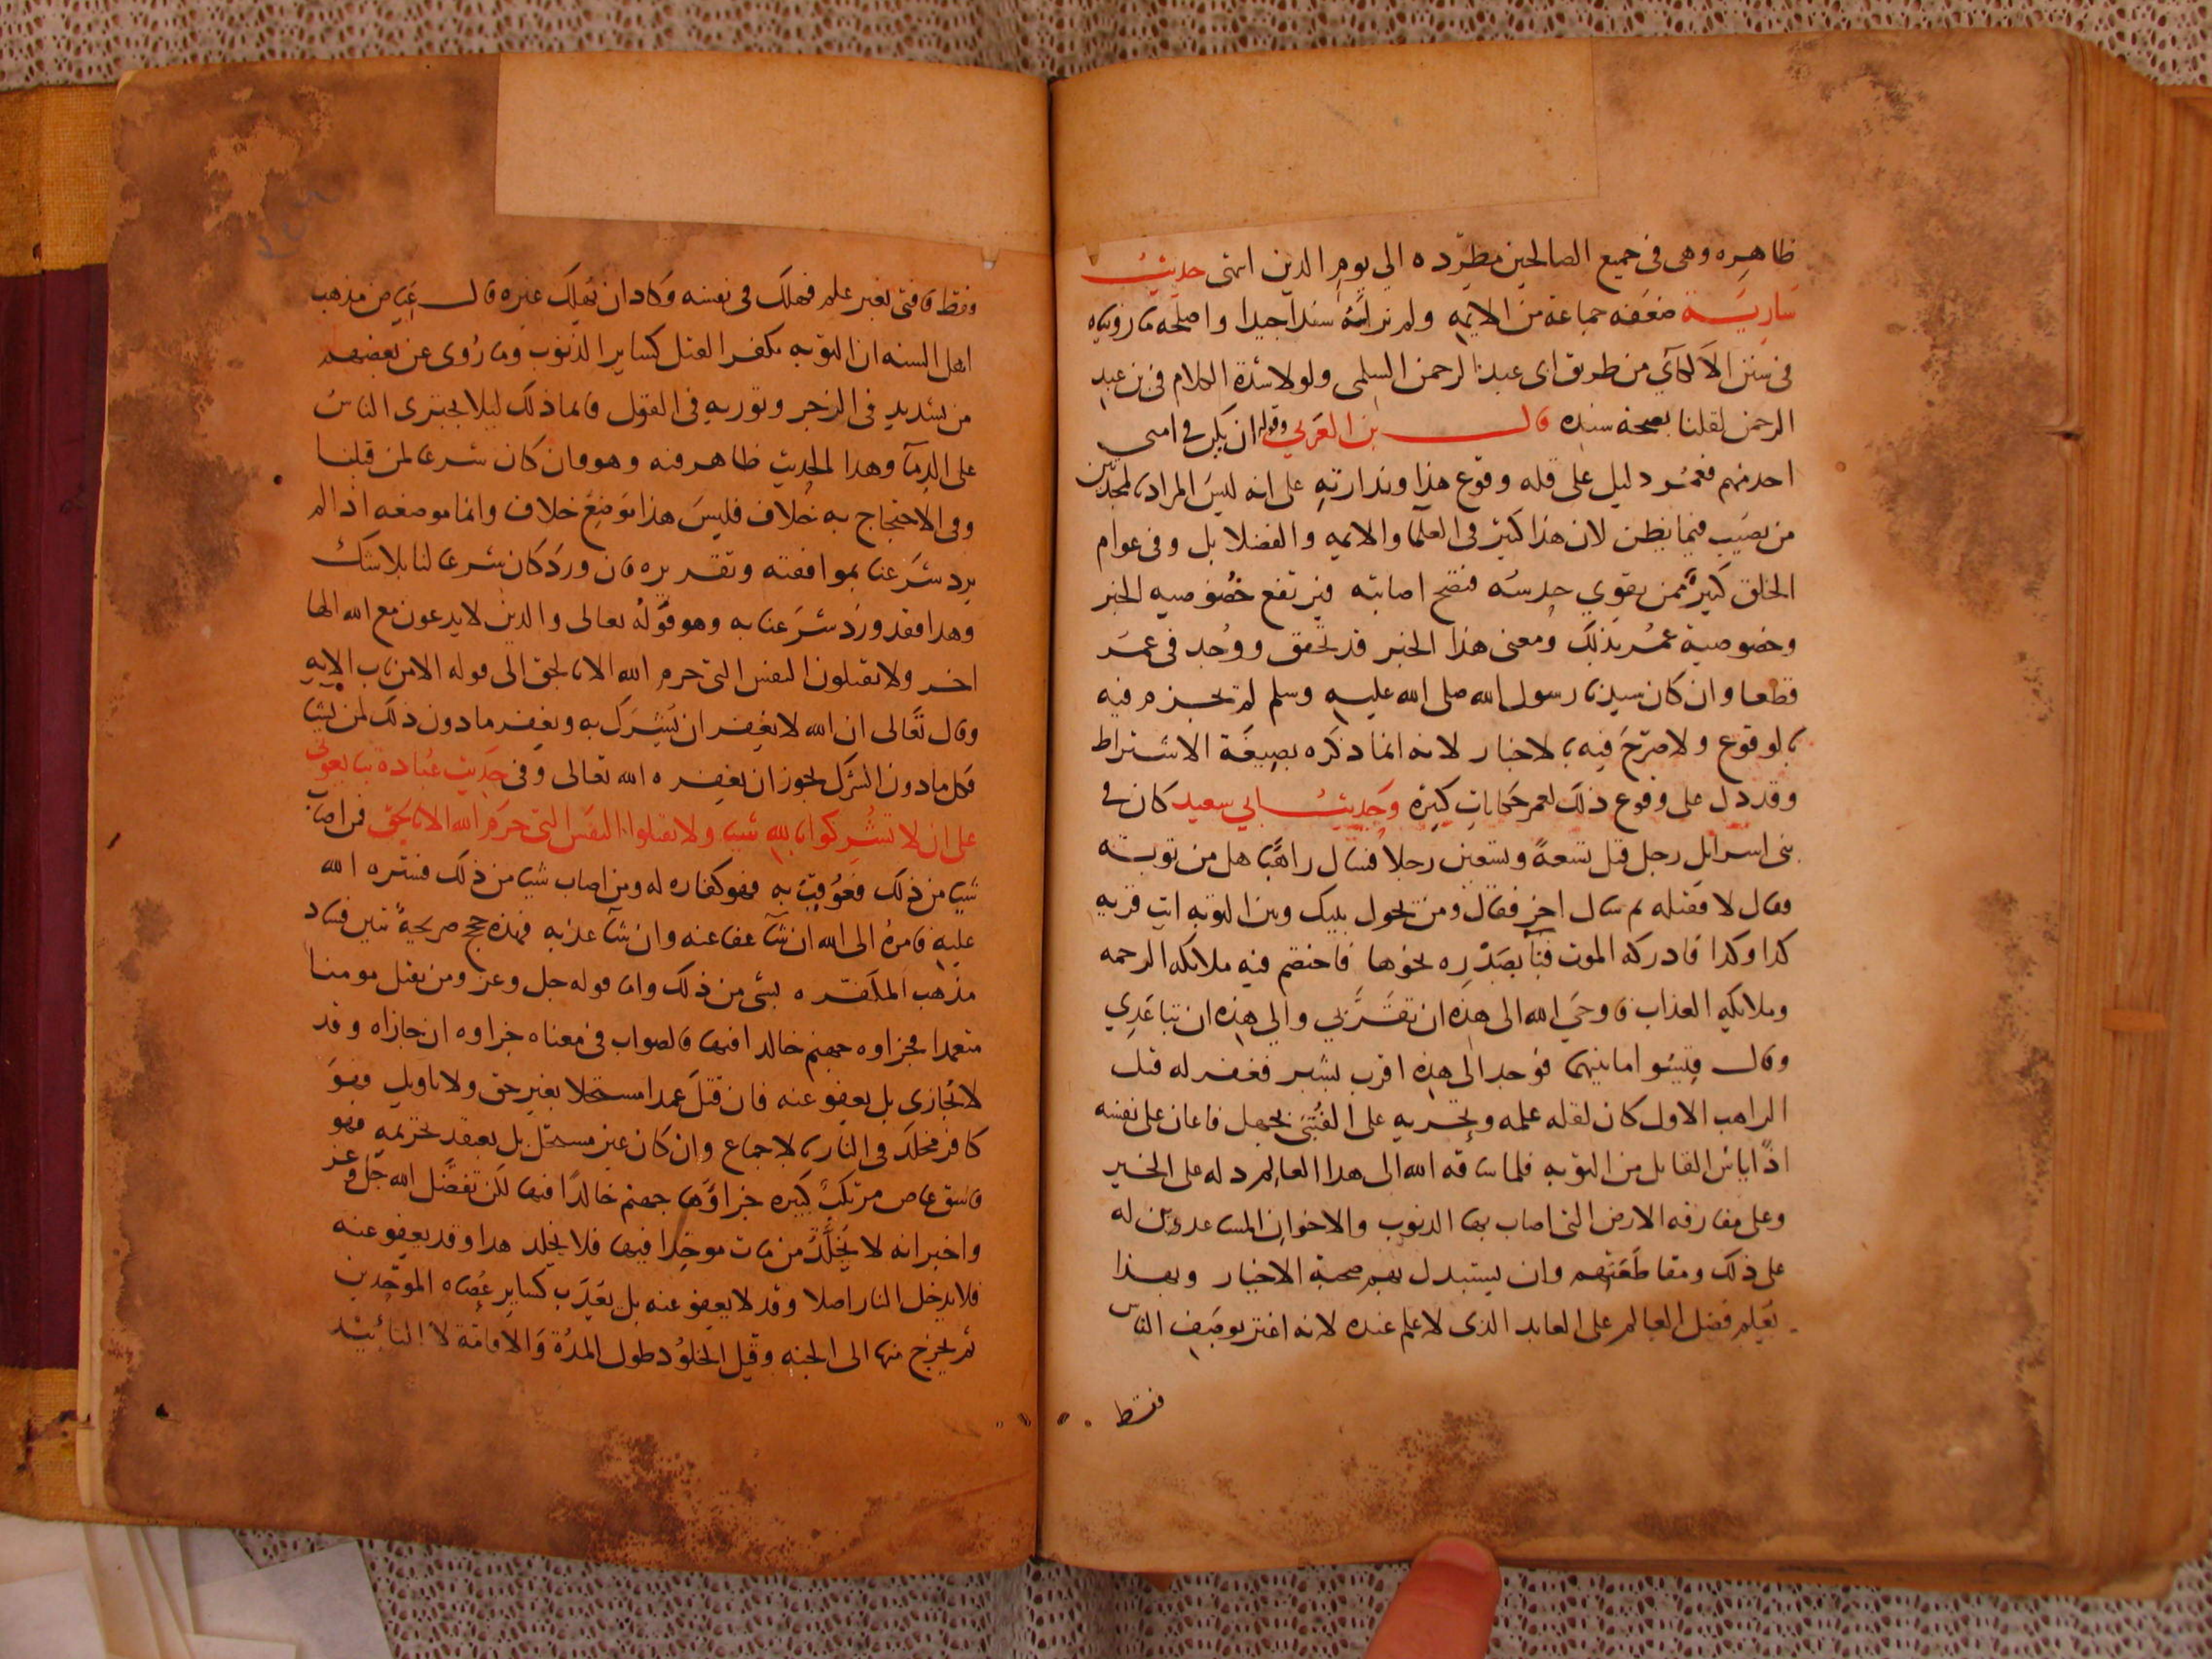 ظاهره وهى فى جميع الصالحين مطرده الي يوم الدين انتهى حديث
سارية ضعفه جماعة من الايمه ولم نر له سندا جيدا واصلحه ما رويناه
فى سنن الالكآي من طريق ابى عبد الرحمن السلمى ولولا شدة الكلام فى بن عبد
الرحمن لقلنا بصحة سنده قال بن العربي وقوله ان يكن في امتى
احد منهم فعمر دليل على قله وقوع هذا وندارته على انه ليس المراد بالمحدثين
من يصيب فيما يظن لان هذا كثير فى العلما والايمه والفضلا بل وفى عوام
الخلق كثير ممن يقوى حدسه فتصح اصابته فيرتفع خصوصيه الخبر
وخصوصية عمر بذلك ومعنى هذا الخبر قد تحقق ووجد فى عمر
قطعا وان كان سيدنا رسول الله صلى الله عليه وسلم لم يجزم فيه
بالوقوع ولا صرح فيه بالاخبار لانه انما ذكره بصيغة الاشتراط
وقد دل على وقوع ذلك لعمر حكايات كثيرة وحديث ابي سعيد كان في
بنى اسرائل رجل قتل تسعة وتسعين رجلا فسال راهبا هل من توبة
فقال لا فقتله ثم سال اخر فقال ومن يحول بينك وبين التوبه ايت قريه
كدا وكدا فادركه الموت فنآ بصدره نحوها فاختصم فيه ملائكه الرحمه
وملائكه العذاب فاوحى الله الى هذه ان تقربي والي هذه ان تباعدي
وقال قيسوا ما بينهما فوجد الى هذه اقرب بشبر فغفر له قتل
الراهب الاول كان لقله علمه وتجريه على الفتيى بجهل فاعان على نفسه
اذ اياس القاتل من التوبه فلما ساقه الله الى هدا العالم دله على الخير
وعلى مفارقه الارض التى اصاب بها الدنوب والاخوان المساعدين له
على ذلك ومقاطعتهم وان يستبدل بهم صحبة الاخيار وبهذا
يعلم فضل العالم على العابد الذى لا علم عنده لانه اغتر بوصف الناس
فقط
وفقط فافتى بغير علم فهلك فى نفسه وكاد ان يهلك غيره قال عياض مذهب
اهل السنه ان التوبه تكفر القتل كساير الذنوب وما روى عن بعضهم
من تشديد فى الزجر وتوريه فى القول فانما ذلك ليلا يجترى الناس
على الدمآ وهدا الحديث ظاهر فيه وهو وان كان شرعا لمن قبلنا
وفى الاحتجاج به خلاف فليس هذا موضع خلاف وانما موضعه اذا لم
يرد شرعنا بموافقته وتقريره فان ورد كان شرعا لنا بلا شك
وهدا فقد ورد شرعنا به وهو قوله تعالى والدين لا يدعون مع الله الها
اخر ولا يقتلون النفس التى حرم الله الا بالحق الى قوله الا من تاب الايه
وقال تعالى ان الله لا يغفر ان يشرك به ويغفر ما دون ذلك لمن يشا
فكل ما دون الشرك يجوز ان يغفره الله تعالى وفى حديث عبادة تبايعونى
على ان لا تشركوا بالله شيا ولا تقتلوا النفس التى حرم الله الا بالحق فمن اصاب
شيا من ذلك فعوقب به فهو كفاره له ومن اصاب شيا من ذلك فستره الله
عليه فامره الى الله ان شآ عفا عنه وان شآ عذبه فهذه حجج صريحة تبين فساد
مذهب المكفره بشى من ذلك واما قوله جل وعز ومن يقتل مومنا
متعمدا فجزاوه جهنم خالدا فيها فالصواب فى معناه جزاوه ان جازاه وقد
لا يجازى بل يعفو عنه فان قتل عمدا مستحلا بغير حق ولا تاويل فهو
كافر مخلد فى النار بالاجماع وان كان غير مستحل بل يعتقد تحريمه فهو
فاسق عاص مرتكب كبيره جزاؤها جهنم خالدا فيها لكن تفضل الله جل وعز
واخبر انه لا يخلد من مات موحدا فيها فلا يخلد هدا وقد يعفو عنه
فلا يدخل النار اصلا وقد لا يعفو عنه بل يعذب كساير عصاه الموحدين
ثم يخرج منها الى الجنه وقيل الخلود طول المدة والاقامة لا التأبيد